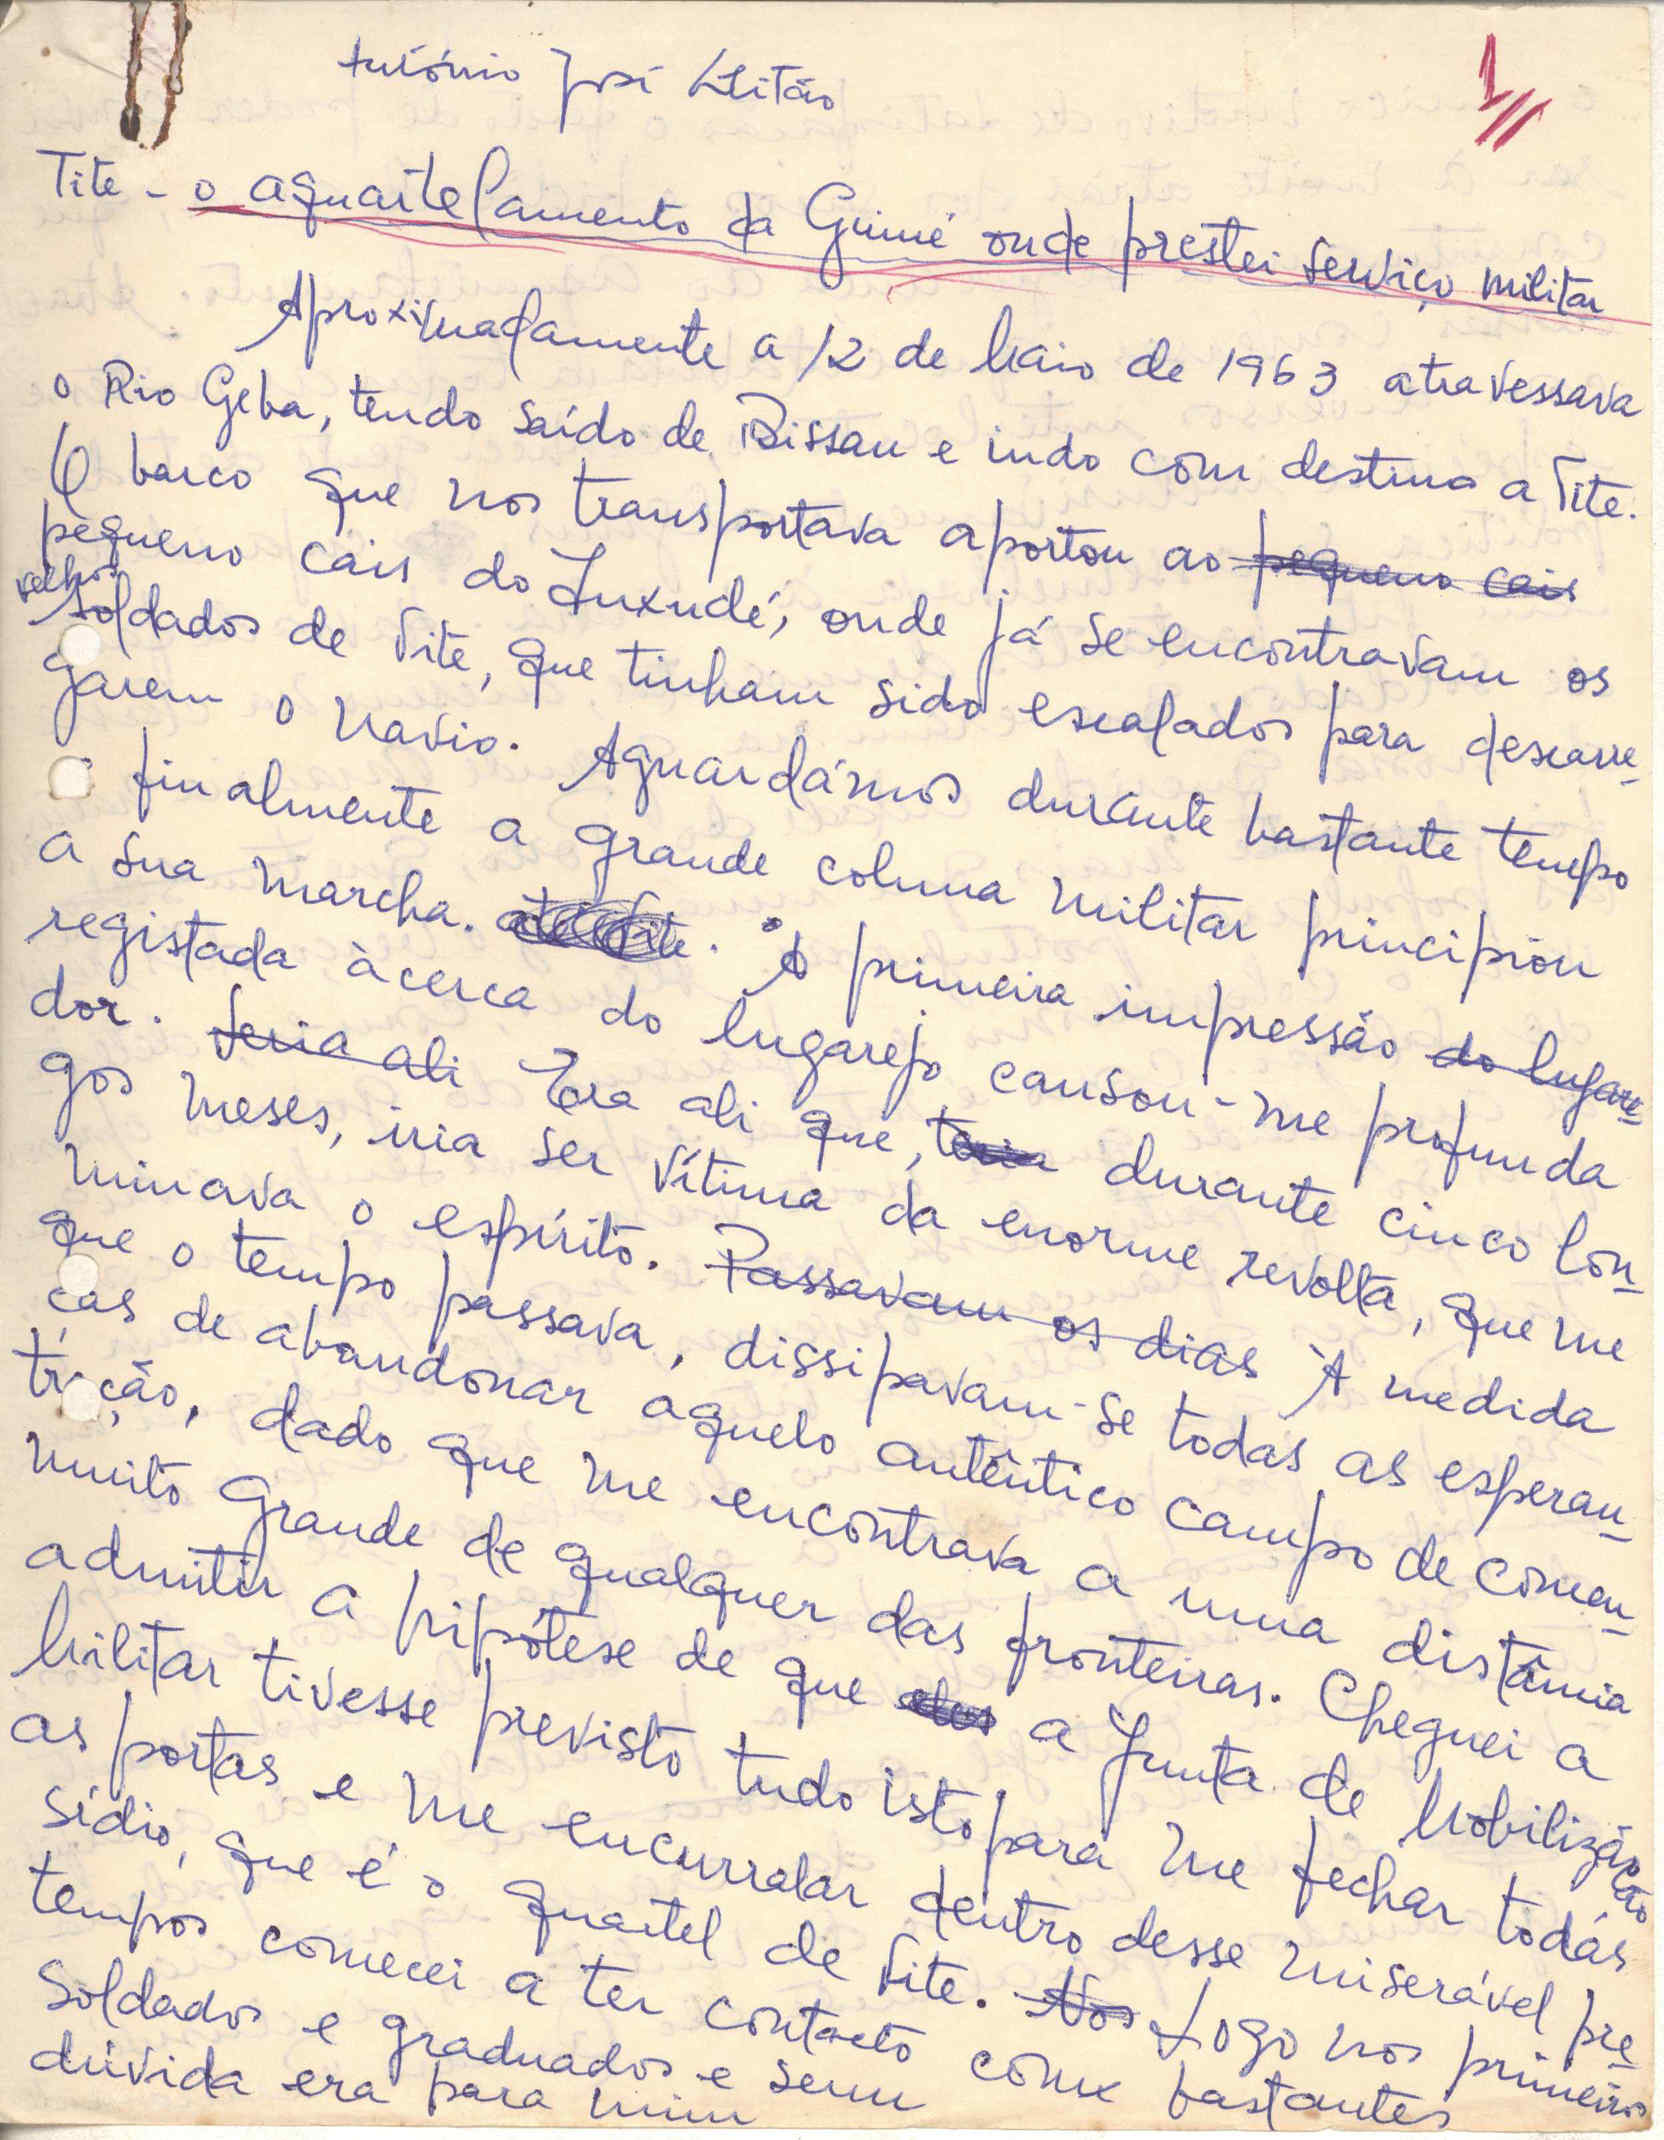 António José Leitão
1//
Tite - o aquartelamento da Guiné onde prestei serviço militar
Aproximadamente a 12 de Maio de 1963 atravessava
o Rio Geba, tendo saído de Bissau e indo com destino a Tite.
O barco que nos transportava aportou ao pequeno cais
pequeno cais do Enxudé, onde já se encontravam os
velhos
soldados de Tite, que tinham sido escalados para descarre-
garem o navio. Aguardámos durante bastante tempo
e finalmente a grande coluna militar principiou
a sua marcha. até Tite. A primeira impressão do lugare-
registada àcerca do lugarejo causou-me profunda
dor. Seria ali Era ali que, teria durante cinco lon-
gos meses, iria ser vítima da enorme revolta, que me
minava o espírito. Passavam os dias À medida
que o tempo passava, dissipavam-se todas as esperan-
ças de abandonar aquelo autêntico campo de concen-
tração, dado que me encontrava a uma distância
muito grande de qualquer das fronteiras. Cheguei a
admitir a hipótese de que a Junta de Mobilização
Militar tivesse previsto tudo isto para me fechar todas
as portas e me encurralar dentro desse miserável pre-
sídio, que é o quartel de Tite. Nos Logo nos primeiros
tempos comecei a ter contacto com bastantes
soldados e graduados e sem
dúvida era para mim